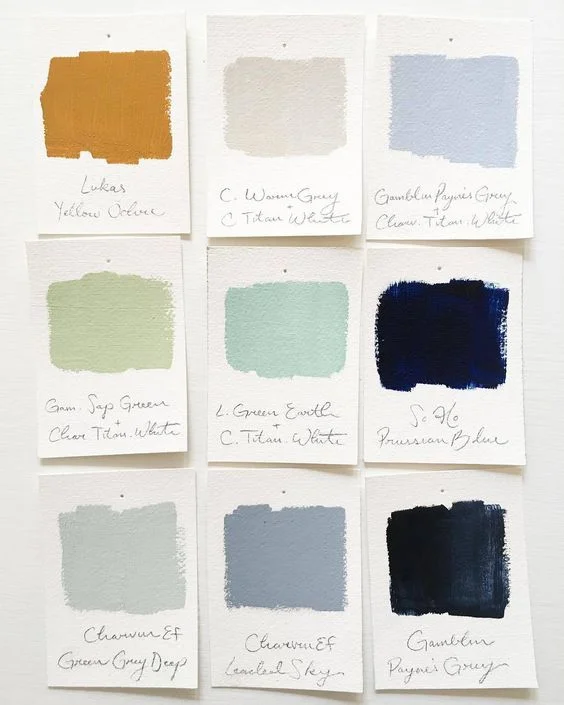 Lukas
Yellow Ochre
C. Warm Grey
+
C Titan. White
Gamblin Payne's Grey
+
Charv. Titan. White
Gam. Sap Green
+
Char. Titan. White
L. Green Earth
+
C. Titan. White
So Ho
Prussian Blue
Charvin Ef
Green Grey Deep
Charvin Ef
Leaded Sky
Gamblin
Payne's Grey